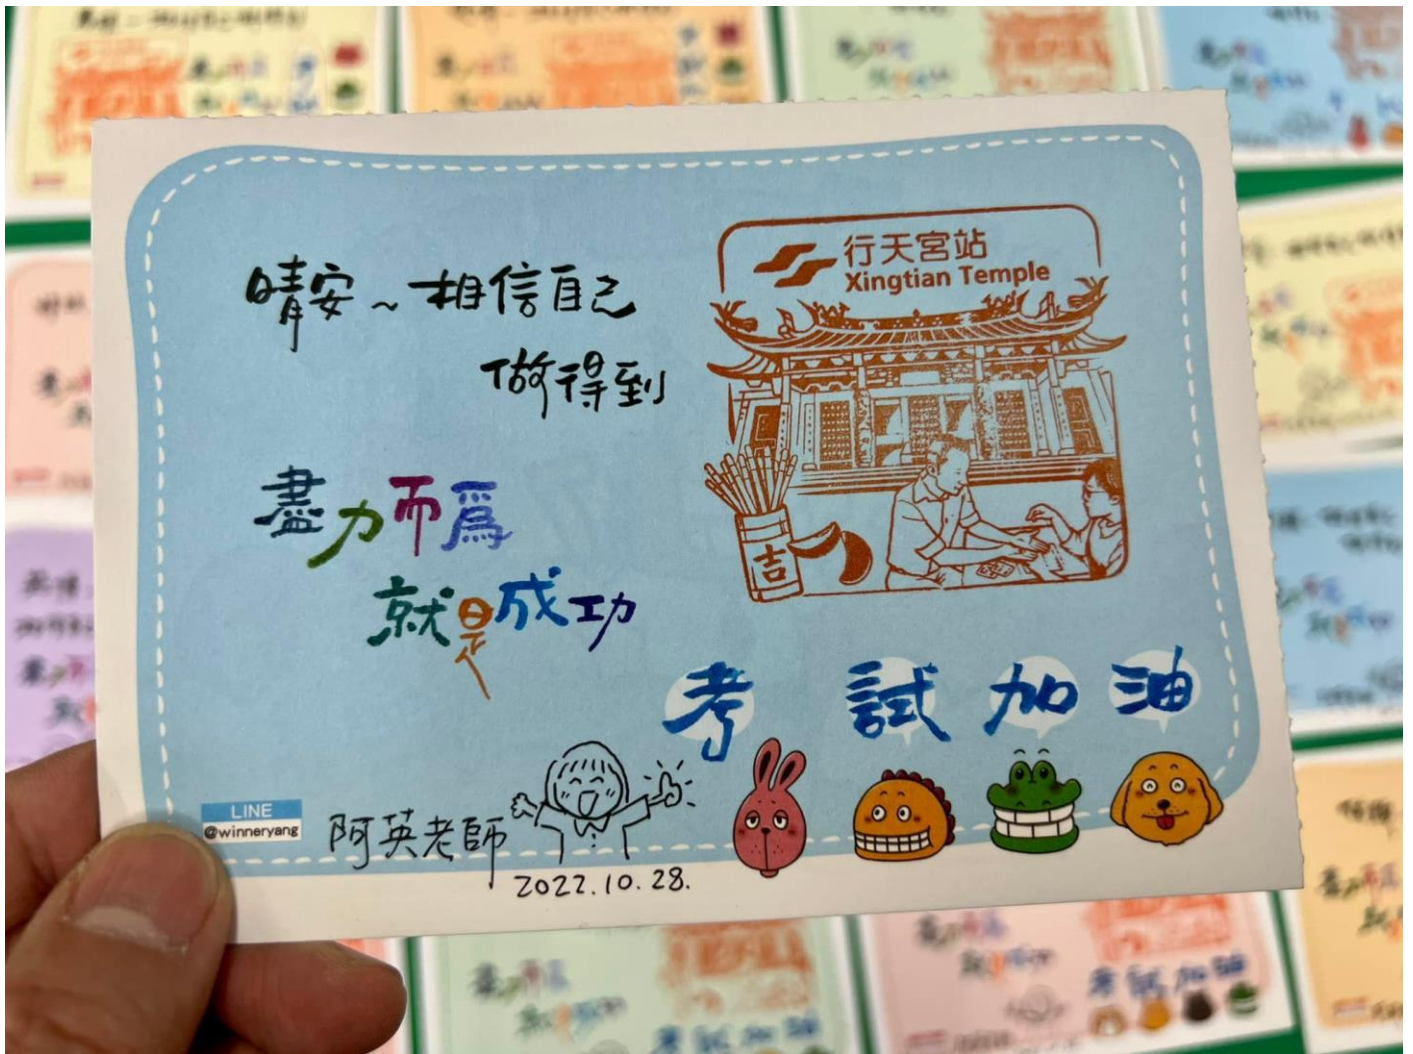 晴安～相信自己
做得到
盡力而為
就是成功
行天宮站
Xingtian Temple
吉
考試加油
LINE
@winneryang
阿英老師
2022.10.28.